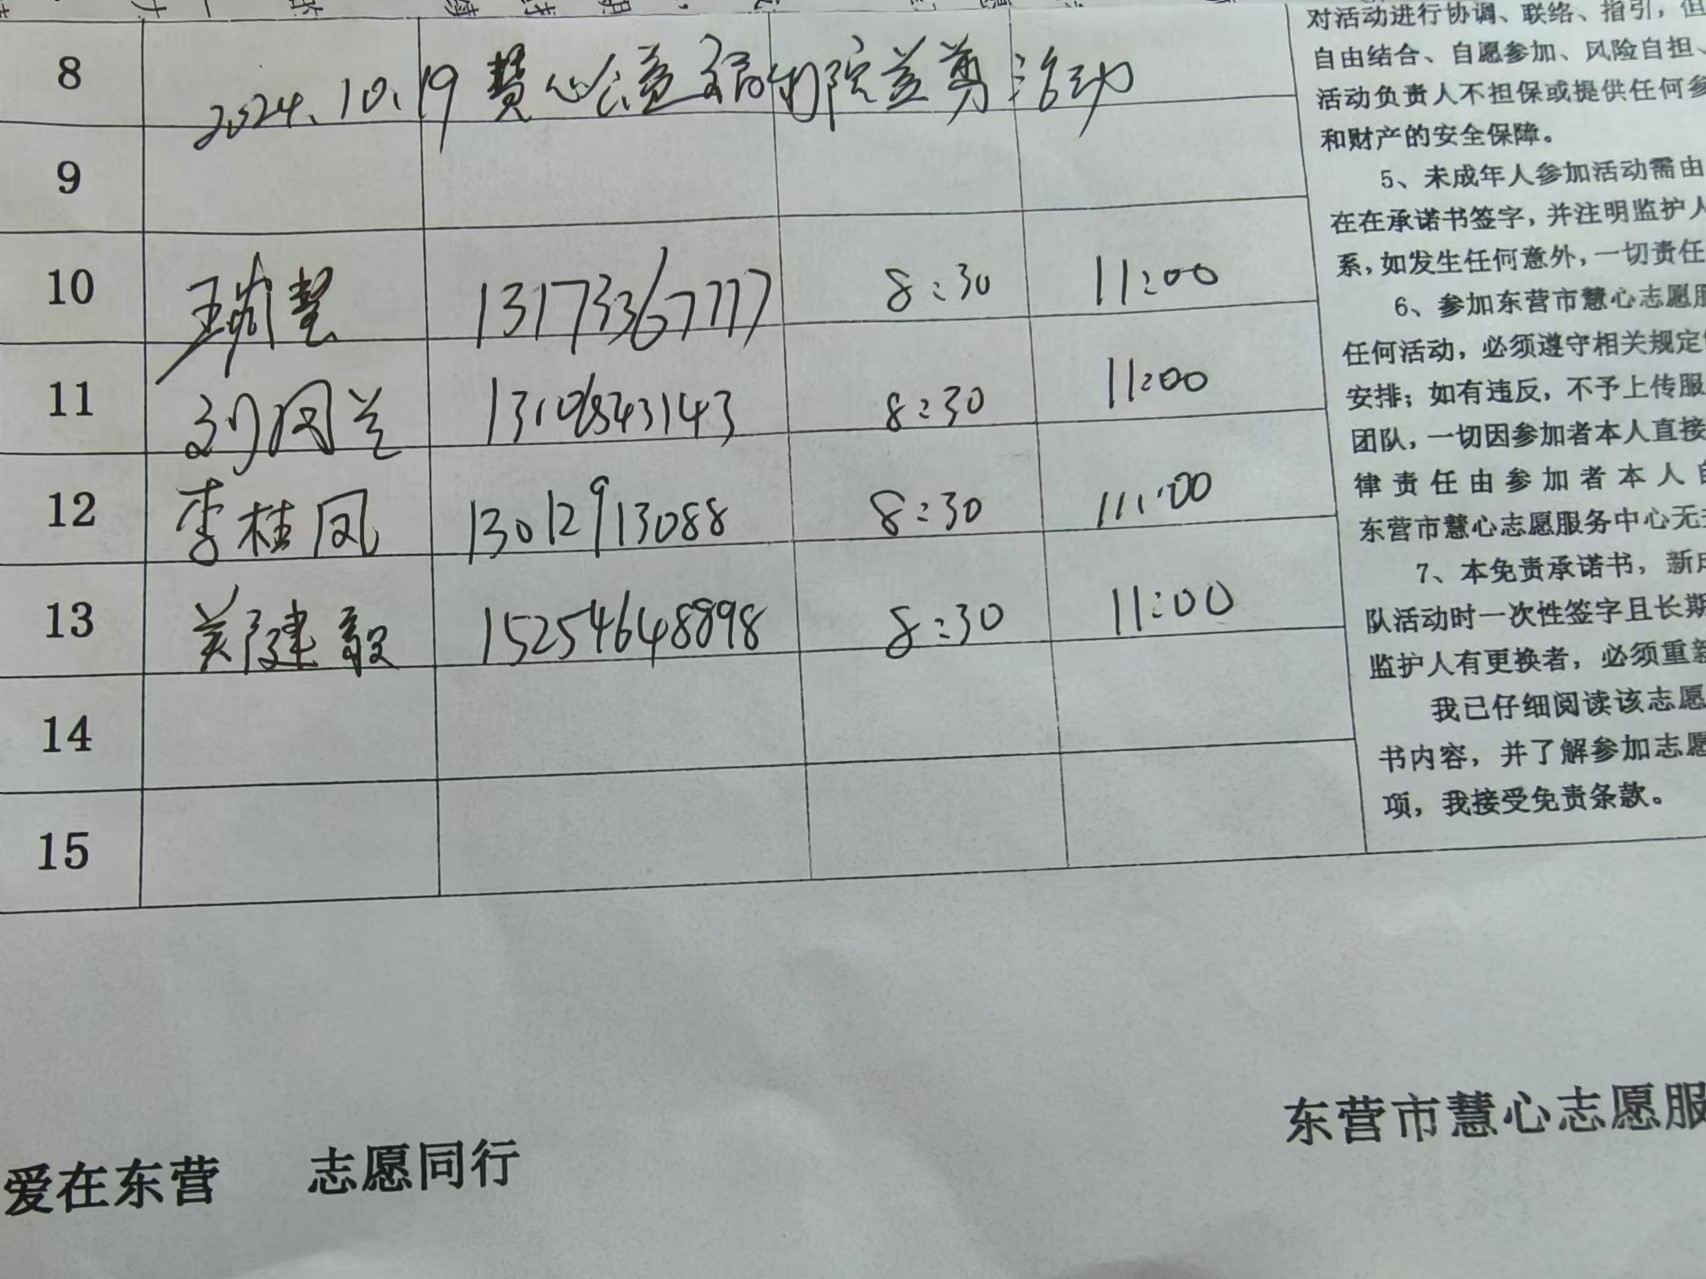 对活动进行协调、联络、指引，但
自由结合、自愿参加、风险自担、
活动负责人不担保或提供任何参
和财产的安全保障。
5、未成年人参加活动需由
在在承诺书签字，并注明监护人
系，如发生任何意外，一切责任
6、参加东营市慧心志愿服
任何活动，必须遵守相关规定
安排；如有违反，不予上传服
团队，一切因参加者本人直接
律责任由参加者本人自
东营市慧心志愿服务中心无
7、本免责承诺书，新
队活动时一次性签字且长期
监护人有更换者，必须重新
我已仔细阅读该志愿
书内容，并了解参加志愿
项，我接受免责条款。
8 2024.10.19 慧心公益 院益剪活动
9
10 王 慧 13173367777 8:30 11:00
11 刘凤兰 13108543143 8:30 11:00
12 李桂凤 13012913088 8:30 11:00
13 吴建毅 15254648898 8:30 11:00
14
15
爱在东营 志愿同行
东营市慧心志愿服